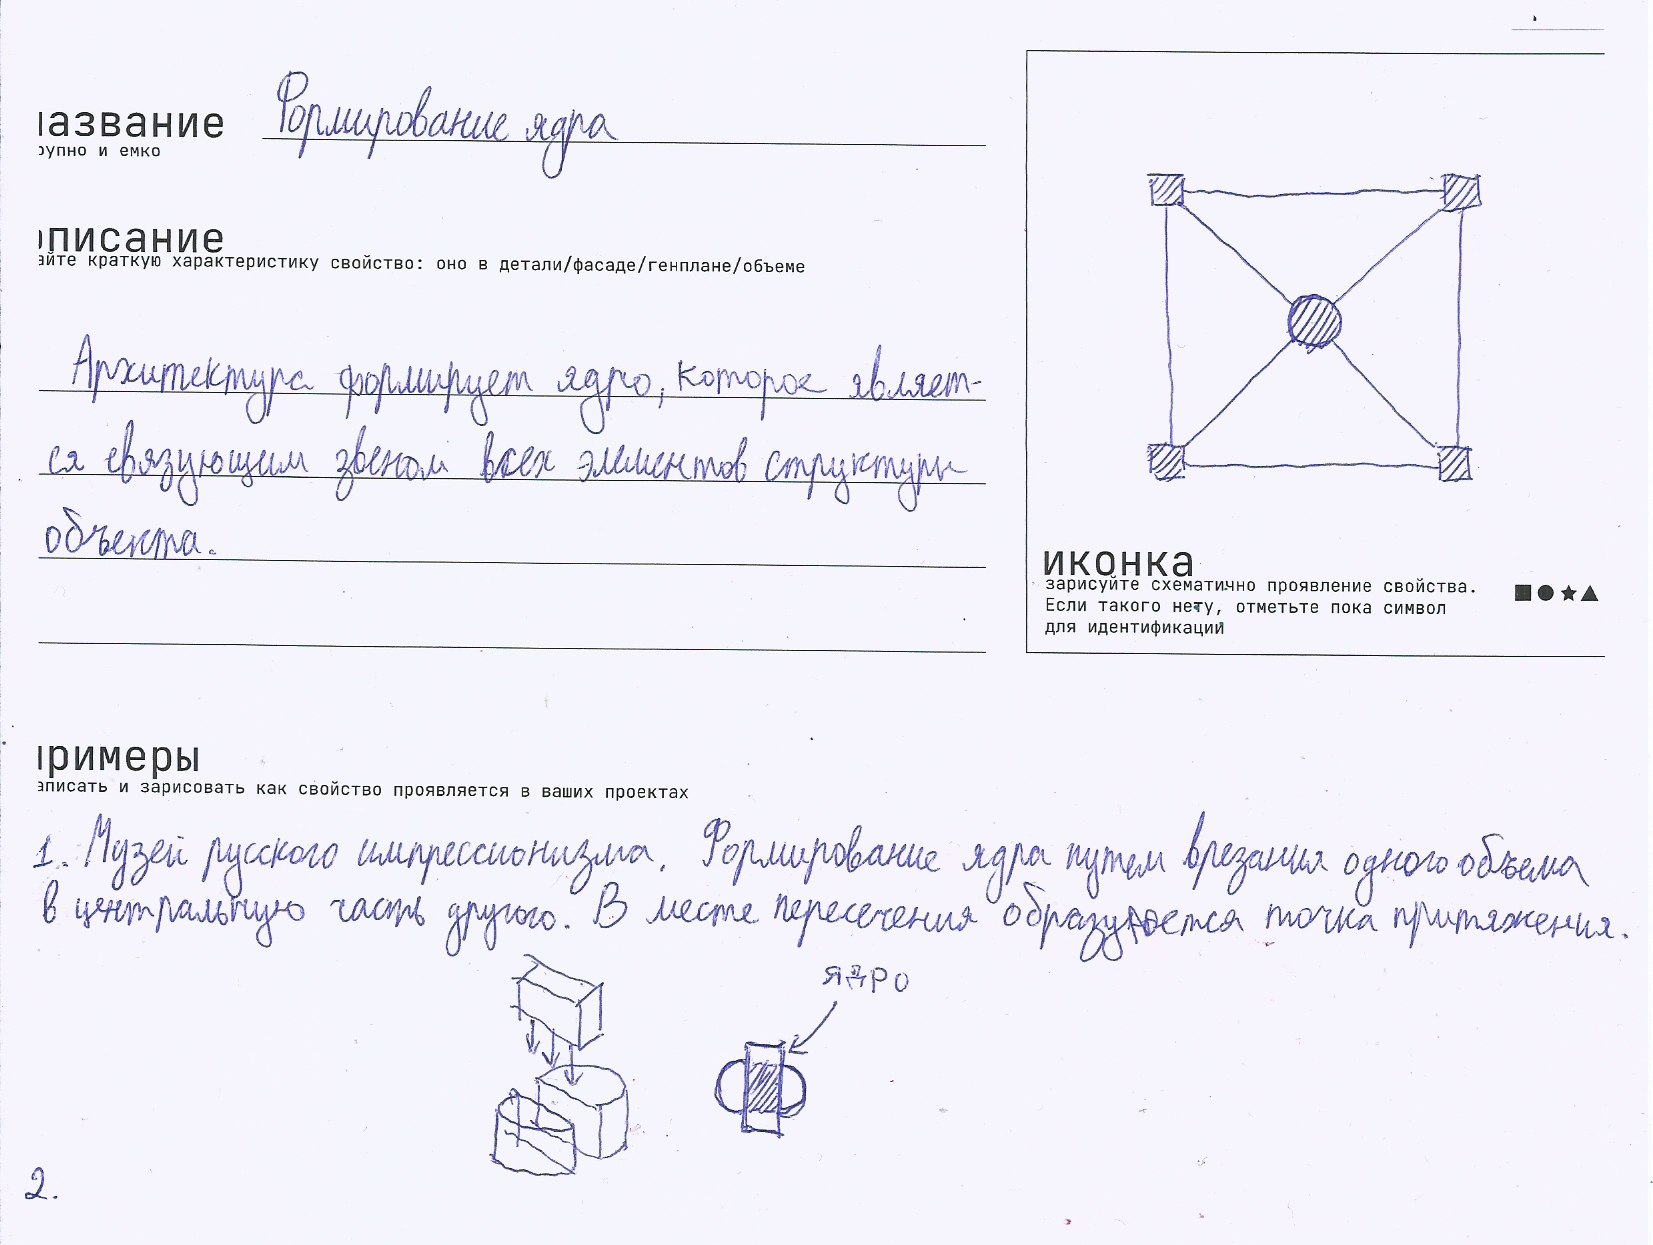 азвание
Формирование ядра
рупно и емко
писание
айте краткую характеристику свойство: оно в детали/фасаде/генплане/объеме
Архитектура формирует ядро, которое являет-
ся связующим звеном всех элементов структуры
объекта.
иконка
зарисуйте схематично проявление свойства.
Если такого нету, отметьте пока символ
для идентификаций
римеры
аписать и зарисовать как свойство проявляется в ваших проектах
1. Музей русского импрессионизма. Формирование ядра путем врезания одного объема
в центральную часть другого. В месте пересечения образуется точка притяжения.
ЯДРО
2.